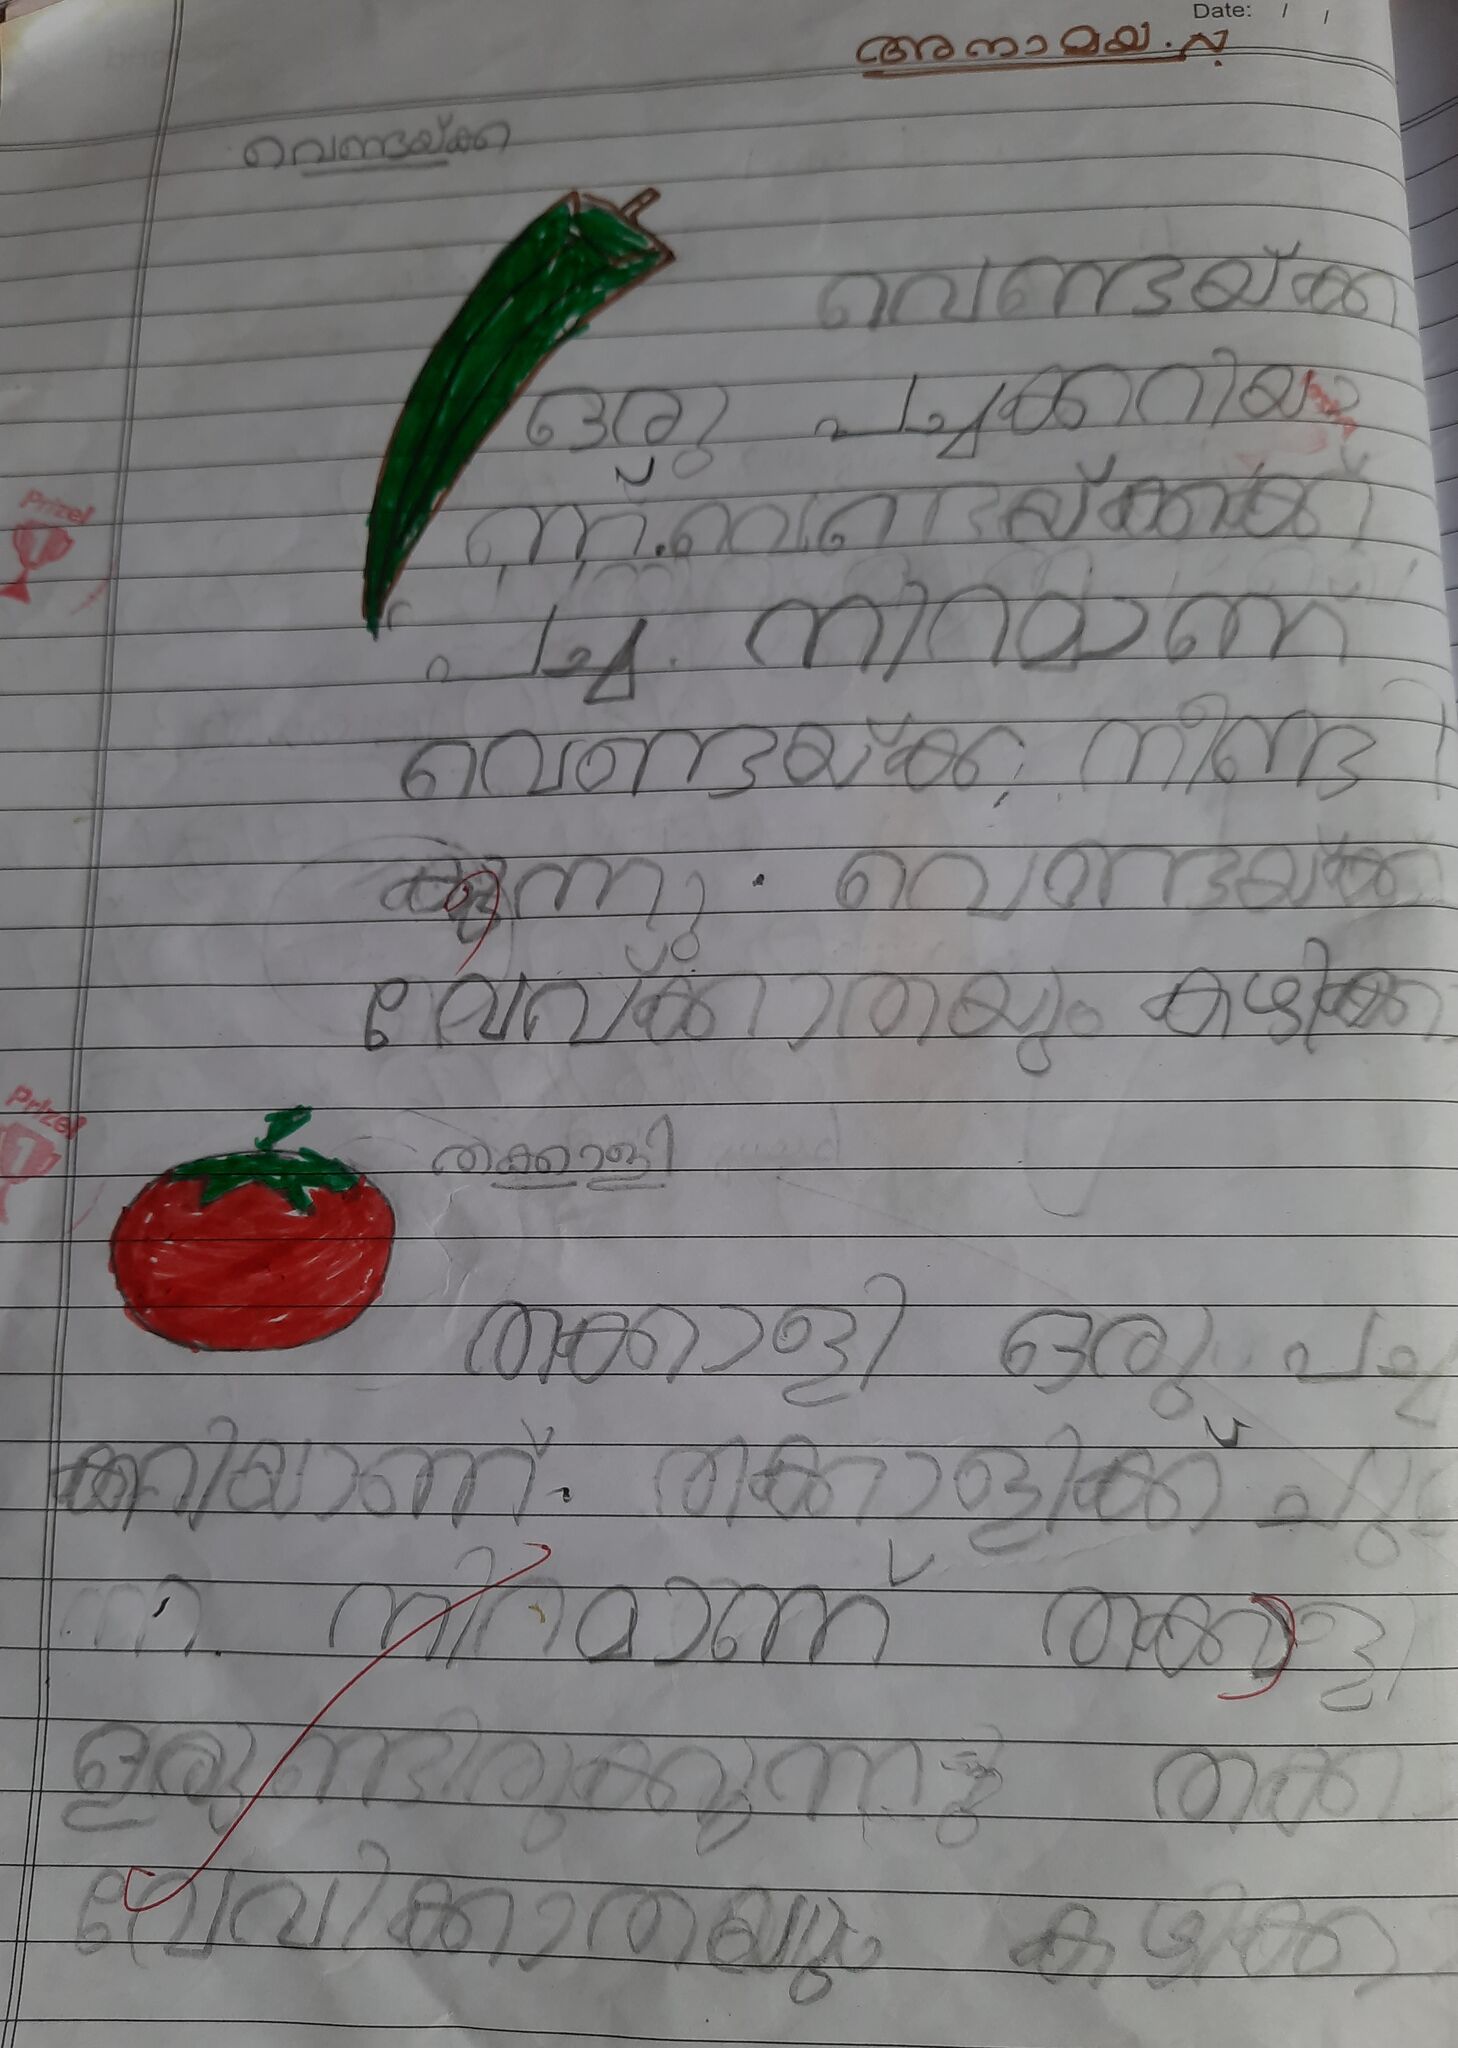 Date: / /
അനാമയ.
വെണ്ടയ്ക്ക
വെണ്ടയ്ക്ക
ഒരു പച്ചക്കറിയാ
ണ്.വെണ്ടയ്ക്കക്ക്
Prize!
1
പച്ച നിറമാണ്
വെണ്ടയ്ക്ക നീണ്ട
ന്നു . വെണ്ടയ്ക്ക
വേവ്ക്കാതയും കഴിക്കാ
Prize!
1
തക്കാളി
തക്കാളി ഒരു പച്ച
ക്കറിയാണ്. തക്കാളിക്ക് ചുവ
ന്ന നിറമാണ് തക്കാളി
തക്കാ
വേവിക്കാതയും കഴിക്കാ